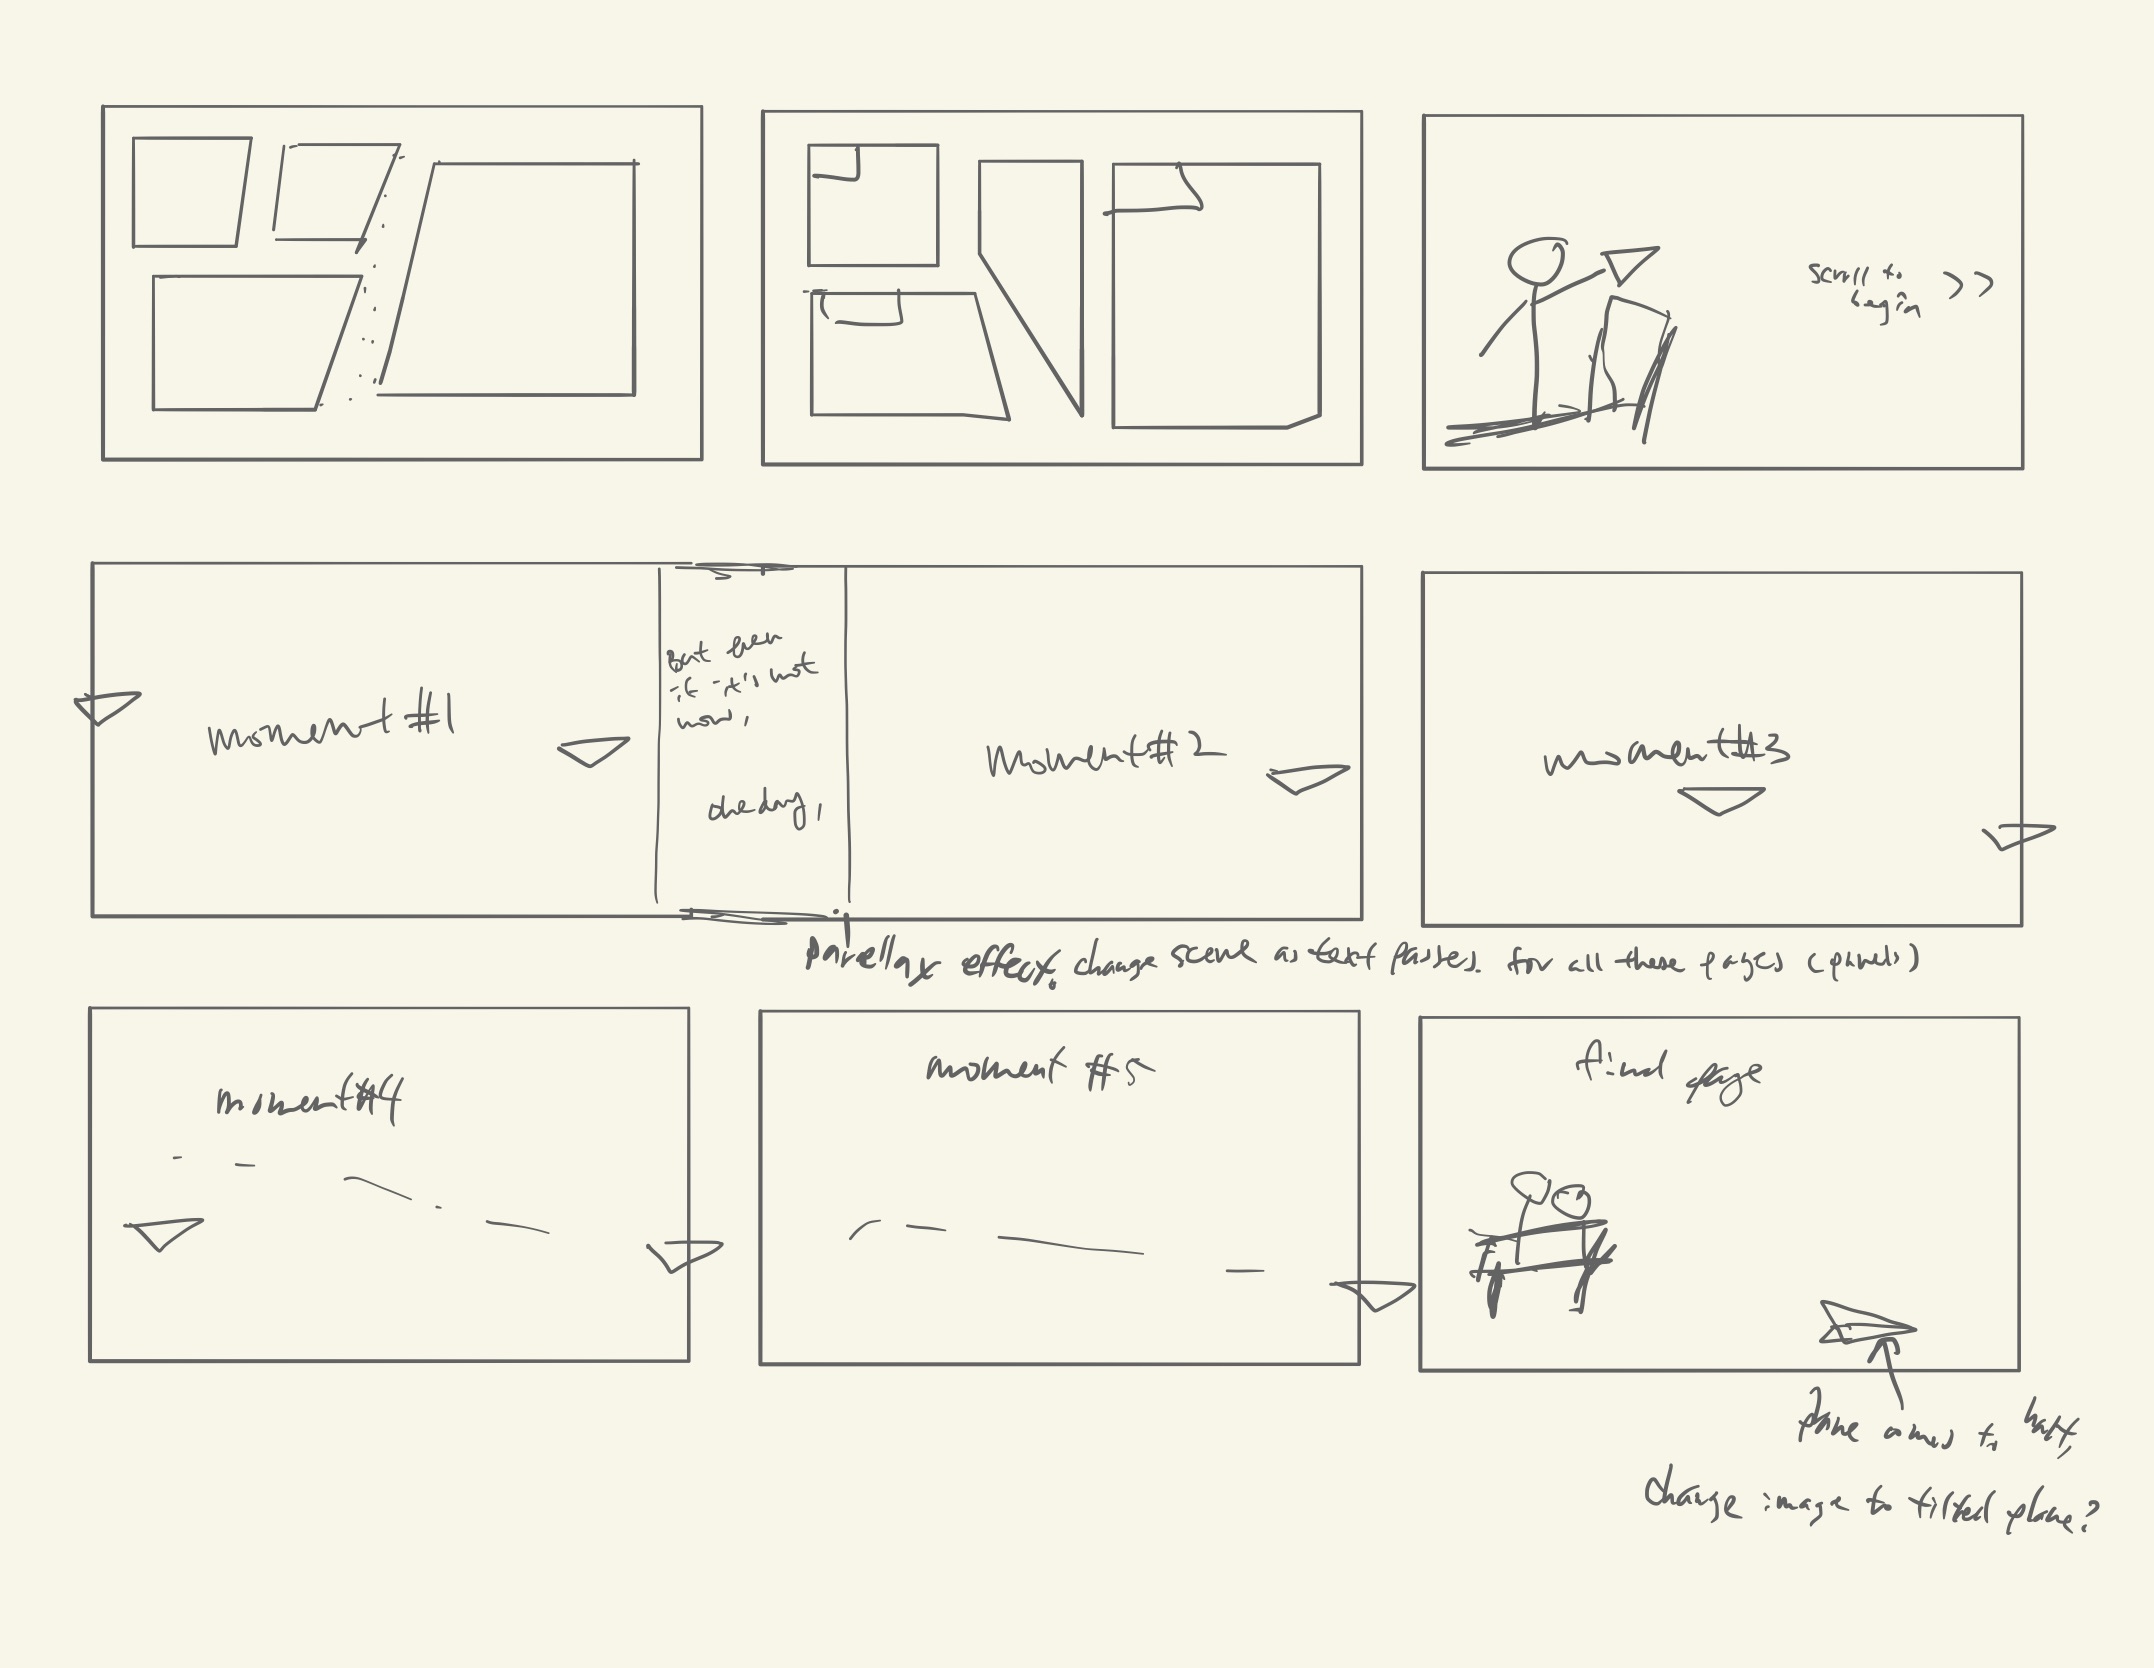 scroll to
begin >>
moment #1
but even
if it's not
now,
moment #2
moment #3
parellax effect. change scene as text passes. for all these pages (panels)
moment #4
moment #5
final page
plane comes to halt,
change image to tilted plane?